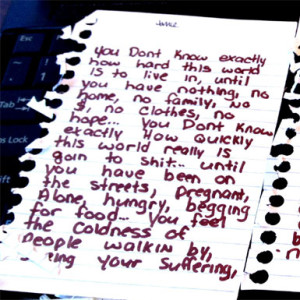 You Dont Know exactly
how hard this world
is to live in, until
you have nothing, no
home, no family, no
$, no clothes, no
hope... You Dont Know
exactly How Quickly
this world really is
goin to shit... until
you have been on
the streets, pregnant,
Alone, hungry, begging
for food... you feel
the coldness of
people walkin by,
your suffering,
Tab
Lock
Shift